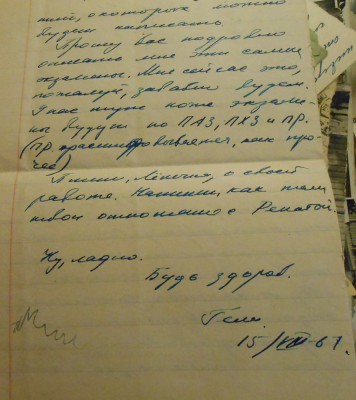 ний, о которых можно
будет написать.
Прошу вас подробно
описать мне эти самые
экзамены. Мне сейчас это,
пожалуй, забавно будет.
У нас тоже экзаме-
ны будут по ПАЗ, ПХЗ и ПР.
(ПР. расшифровывается, как про-
чее)
Пиши, Лёнчик, о своей
работе. Напиши, как там
твои отношения с Ренатой.
Ну, ладно.
Будь здоров.
15/VIII-61.